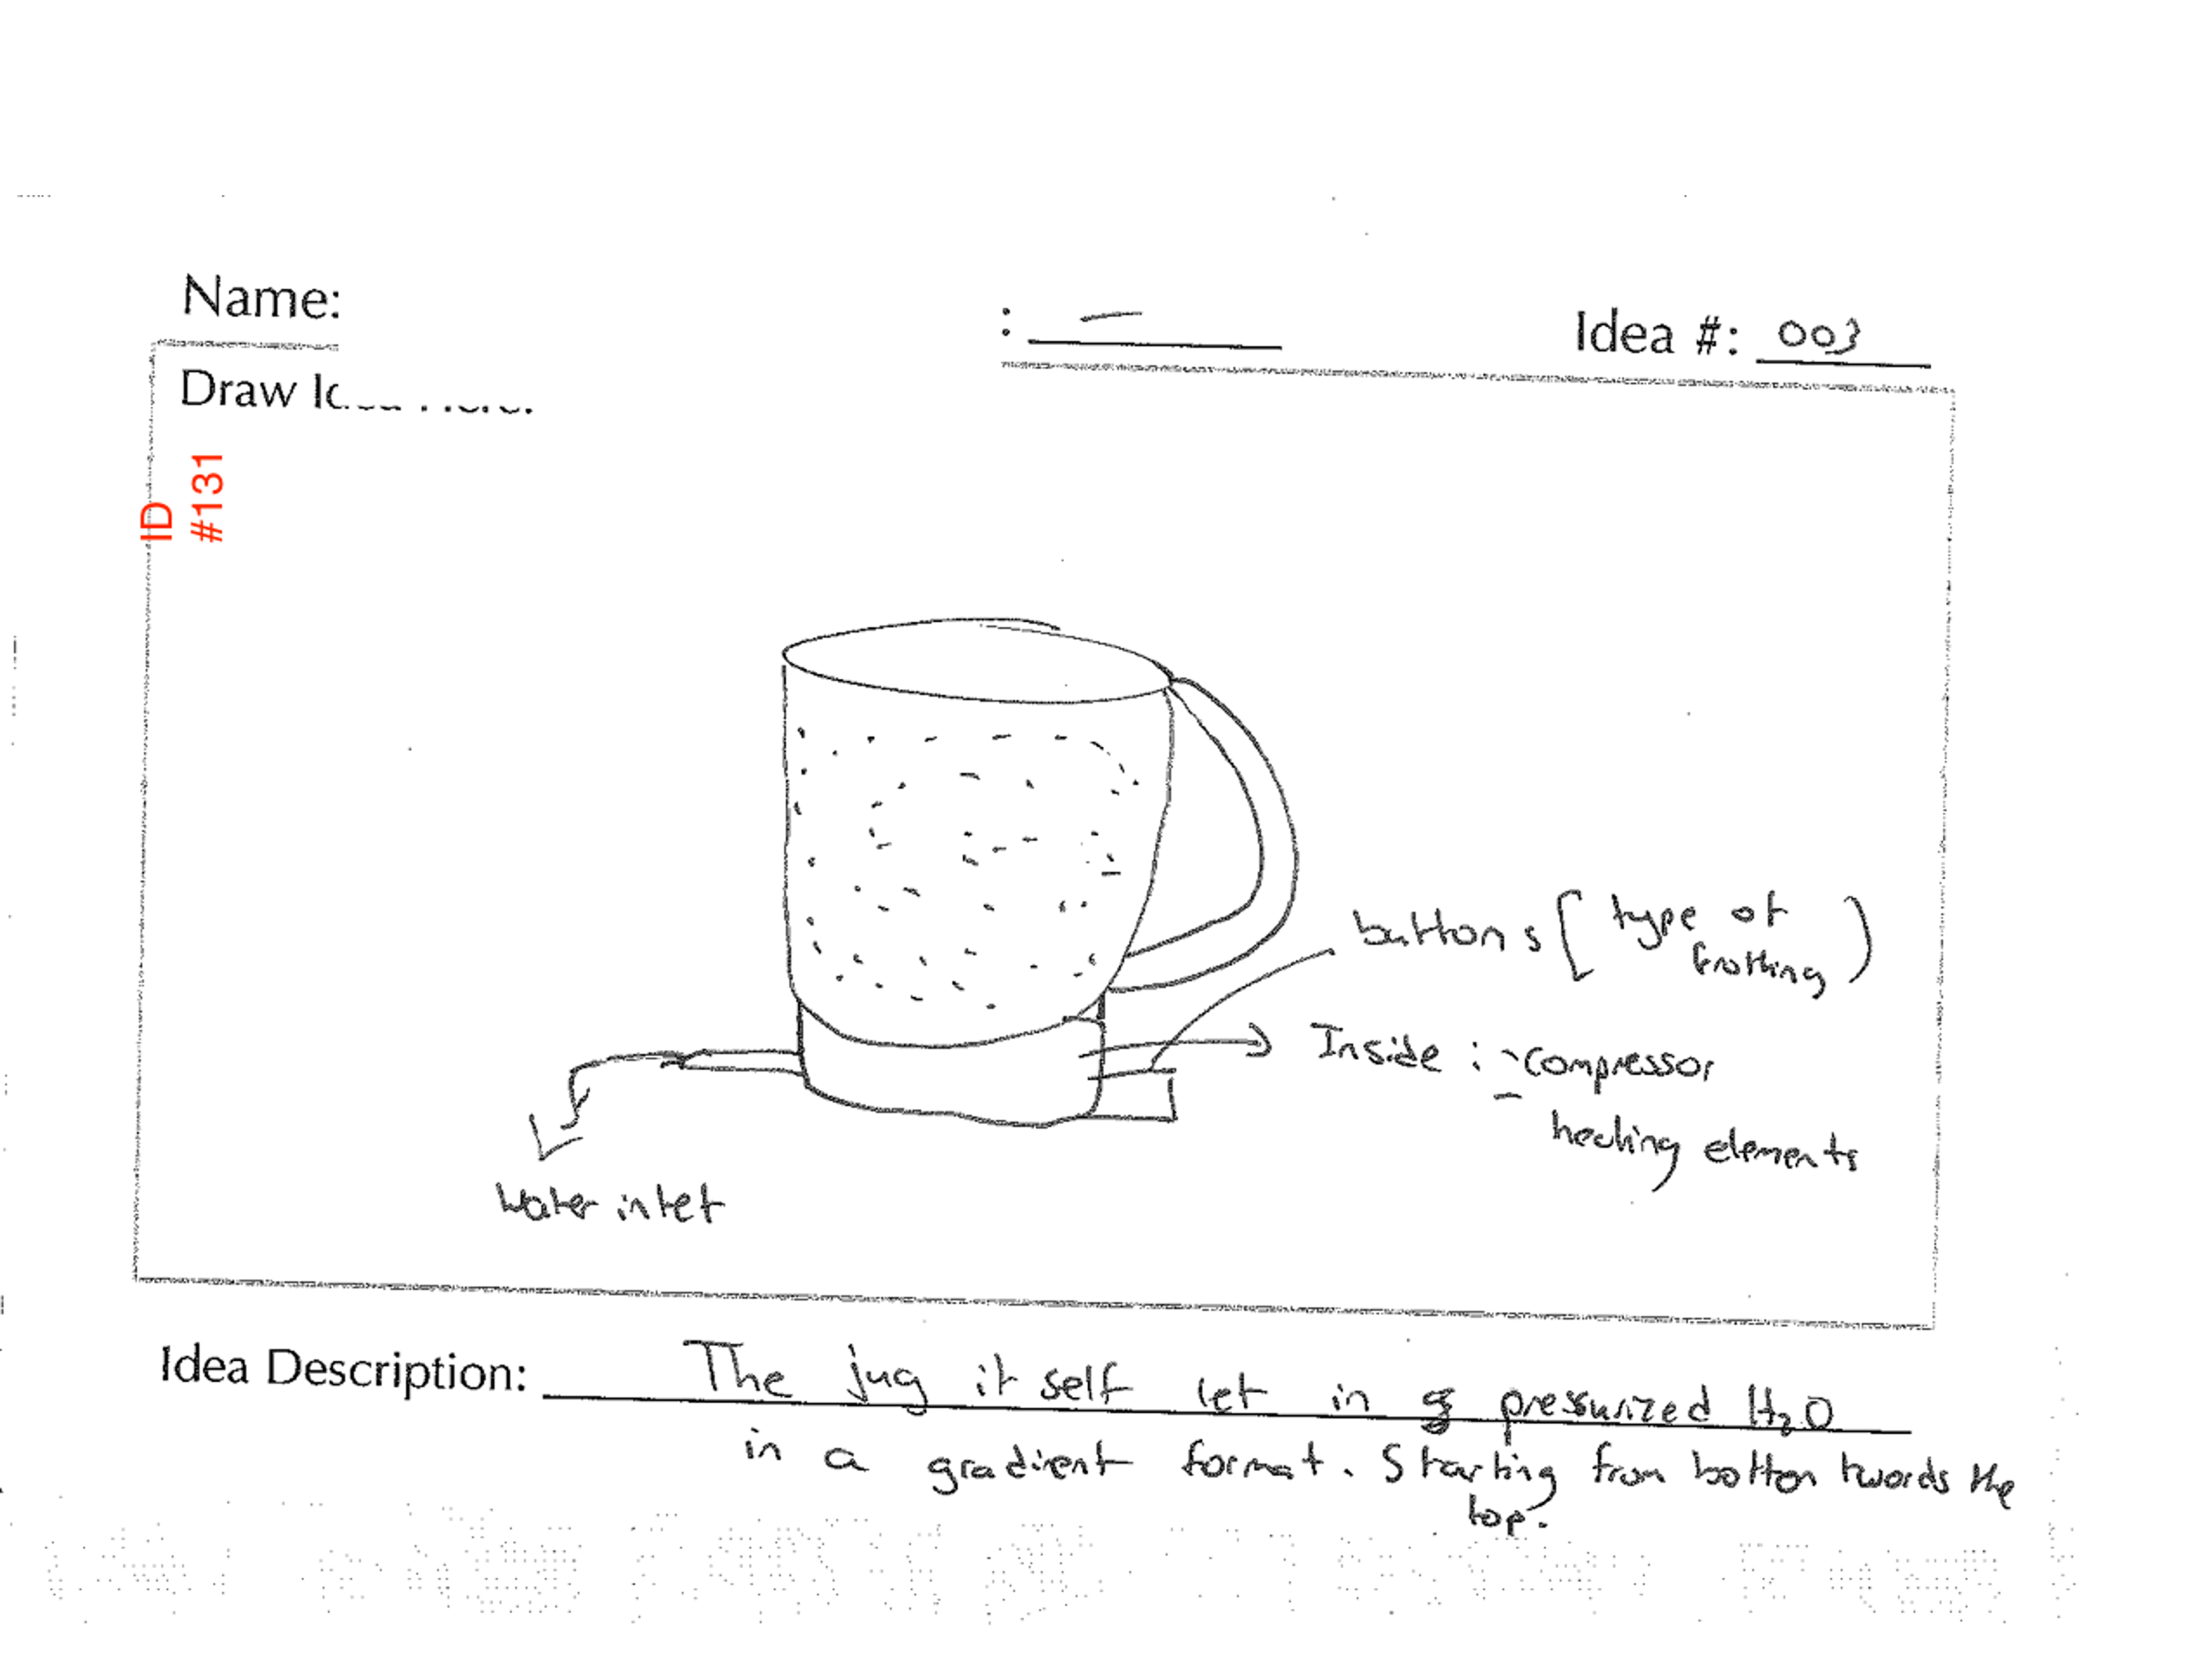 Name:
: —
Idea #: 003
Draw
ID
#131
buttons [type of
frothing)
Inside : - Compressor
-
heating elements
water inlet
Idea Description: The jug it self let in pressurized H2O
in a gradient format. Starting from botton twords the
top.